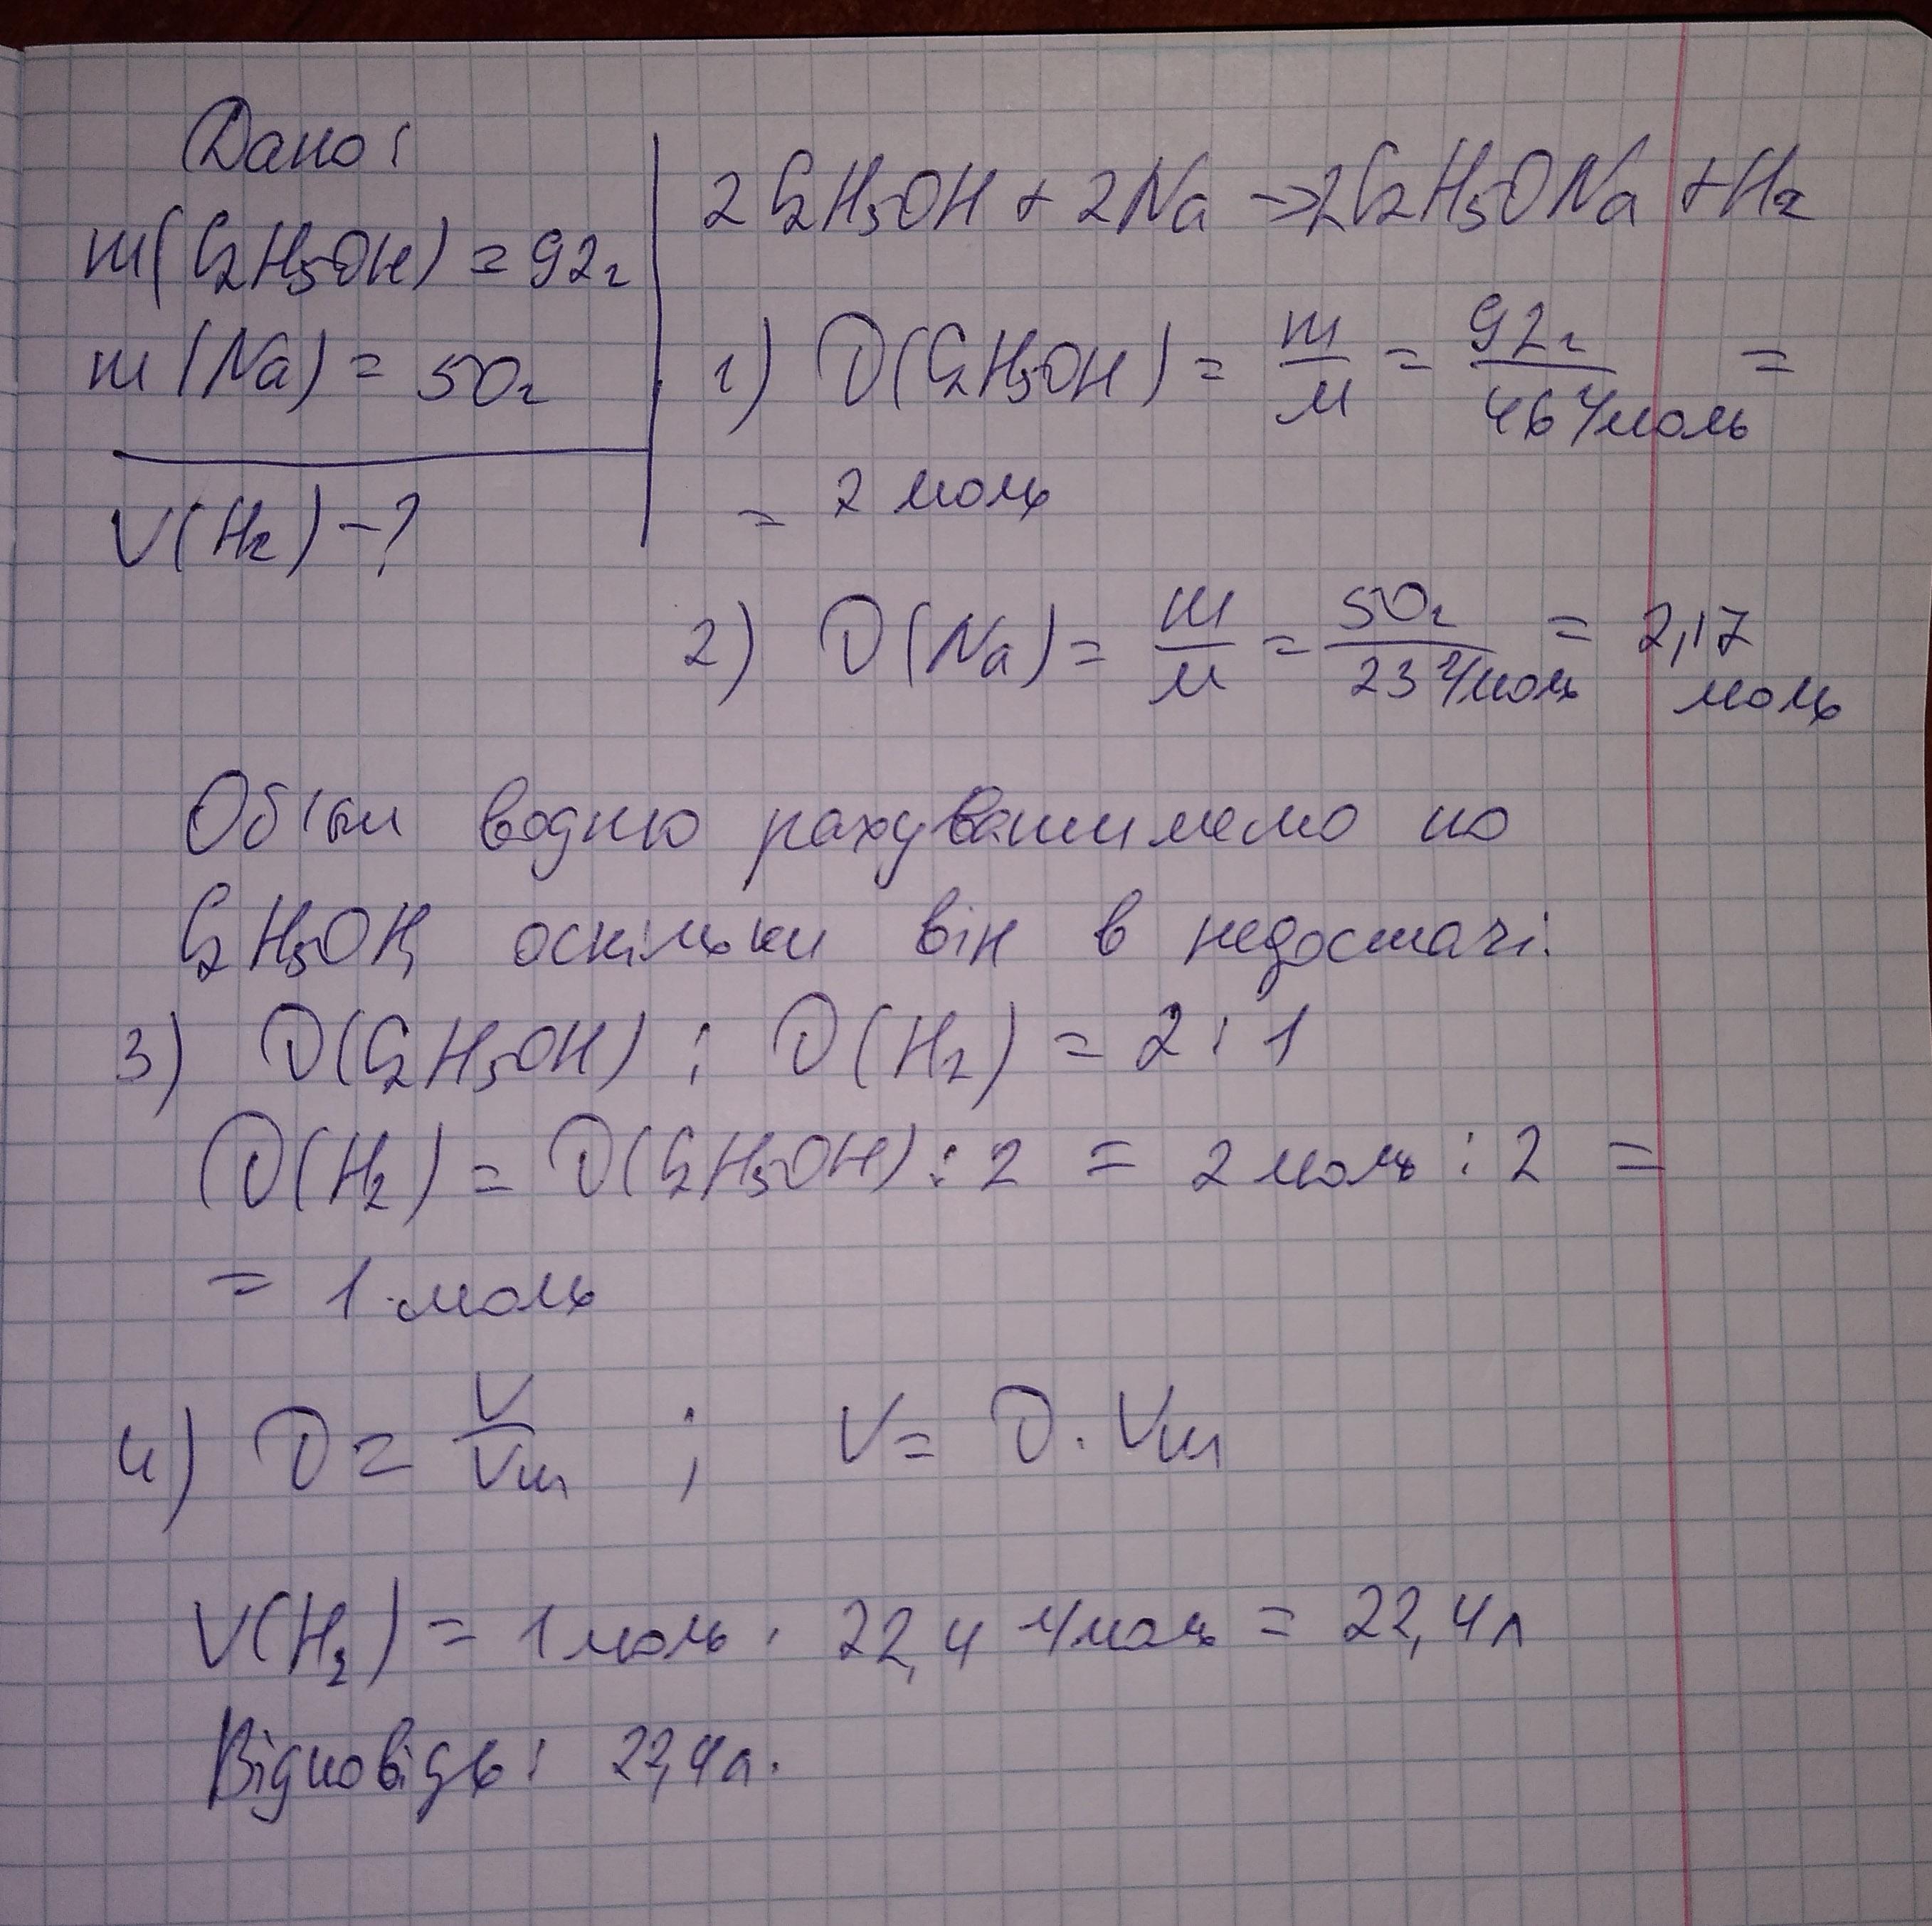 Дано:
m(C₂H₅OH) = 92г
m(Na) = 50г
V(H₂) - ?
2C₂H₅OH + 2Na → 2C₂H₅ONa + H₂
1) ν(C₂H₅OH) = m/M = 92г/46 г/моль =
= 2 моль
2) ν(Na) = m/M = 50г/23 г/моль = 2,17
моль
Об'єм водню рахуватимемо по
C₂H₅OH, оскільки він в недостачі.
3) ν(C₂H₅OH) : ν(H₂) = 2 : 1
ν(H₂) = ν(C₂H₅OH) : 2 = 2 моль : 2 =
= 1 моль
4) ν = V/Vm ; V = ν · Vm
V(H₂) = 1 моль · 22,4 л/моль = 22,4 л
Відповідь: 22,4 л.